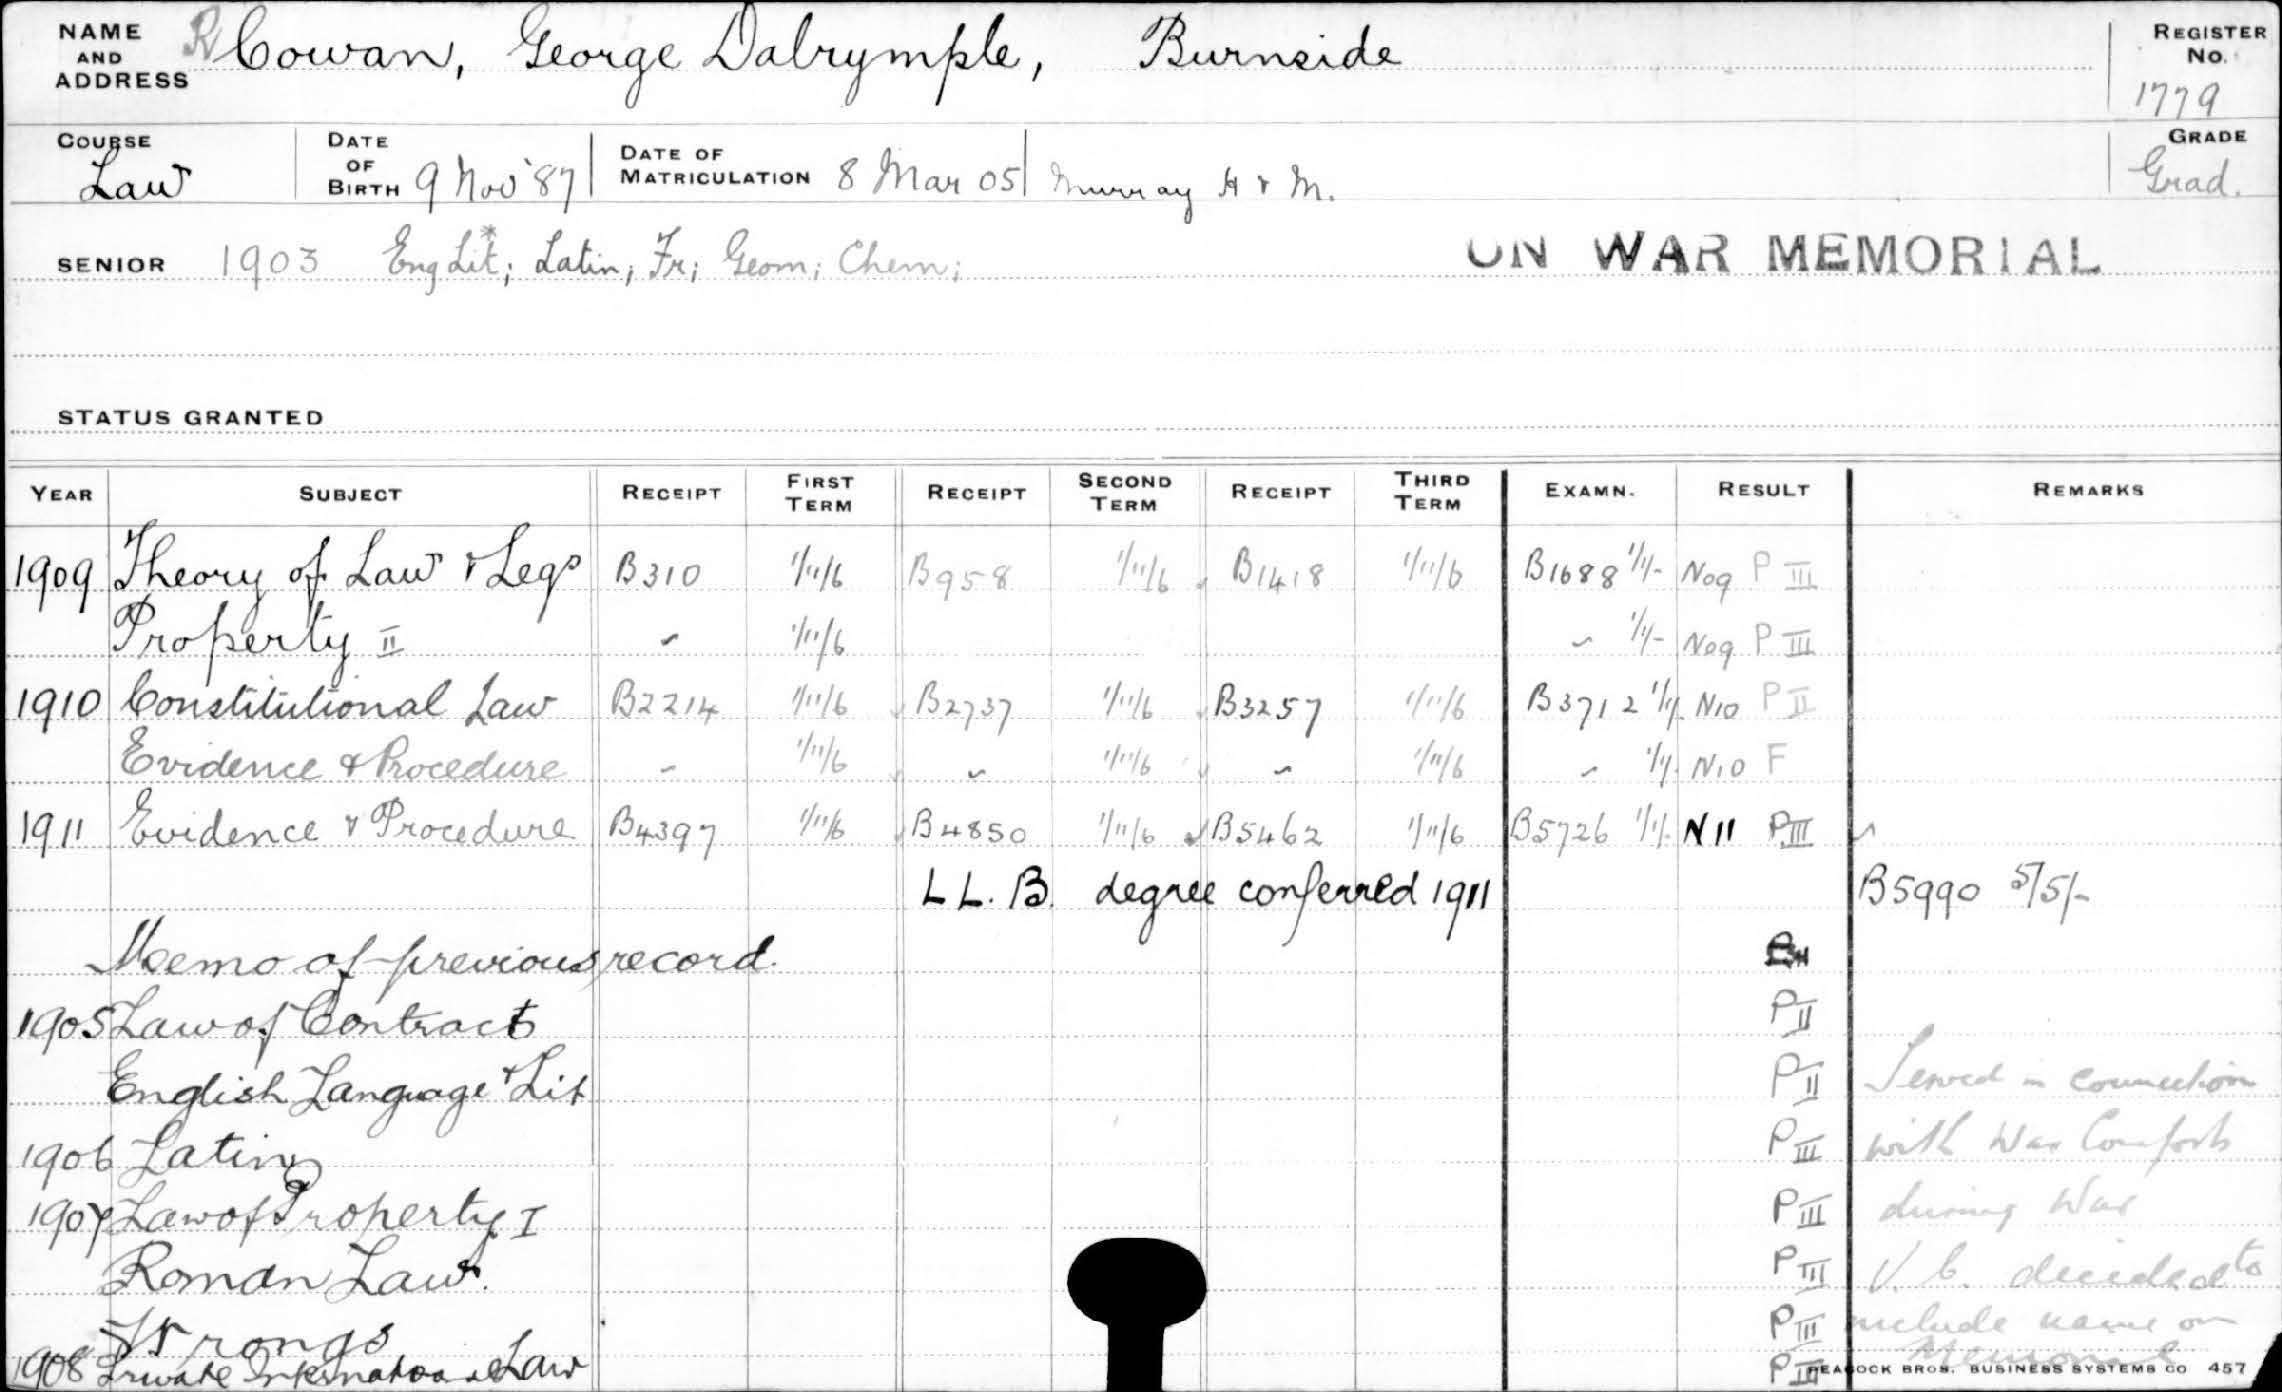 NAME AND ADDRESS R Cowan, George Dalrymple, Burnside REGISTER No. 1779
COURSE Law DATE OF BIRTH 9 Nov '87 DATE OF MATRICULATION 8 Mar 05 Murray H & M. GRADE Grad.
SENIOR 1903 Eng Lit*; Latin; Fr; Geom; Chem; ON WAR MEMORIAL
STATUS GRANTED
YEAR SUBJECT RECEIPT FIRST TERM RECEIPT SECOND TERM RECEIPT THIRD TERM EXAMN. RESULT REMARKS
1909 Theory of Law & Legn B310 1/11/6 B958 1/11/6 B1418 1/11/6 B1688 1/1/- N09 P III
Property II " 1/11/6 " 1/1/- N09 P III
1910 Constitutional Law B2214 1/11/6 B2737 1/11/6 B3257 1/11/6 B3712 1/1/- N10 P II
Evidence & Procedure " 1/11/6 " 1/11/6 " 1/11/6 " 1/1/- N10 F
1911 Evidence & Procedure B4397 1/11/6 B4850 1/11/6 B5462 1/11/6 B5726 1/1/- N11 P III
LL.B. degree conferred 1911 B5990 5/5/-
Memo of previous record.
1905 Law of Contracts P II
English Language & Lit P II Served in connection
1906 Latin P III with War Comforts
1907 Law of Property I P III during War
Roman Law. P III V.C. decided to
Wrongs P III include name on
1908 Private International Law P III Memorial
PEACOCK BROS. BUSINESS SYSTEMS CO 457